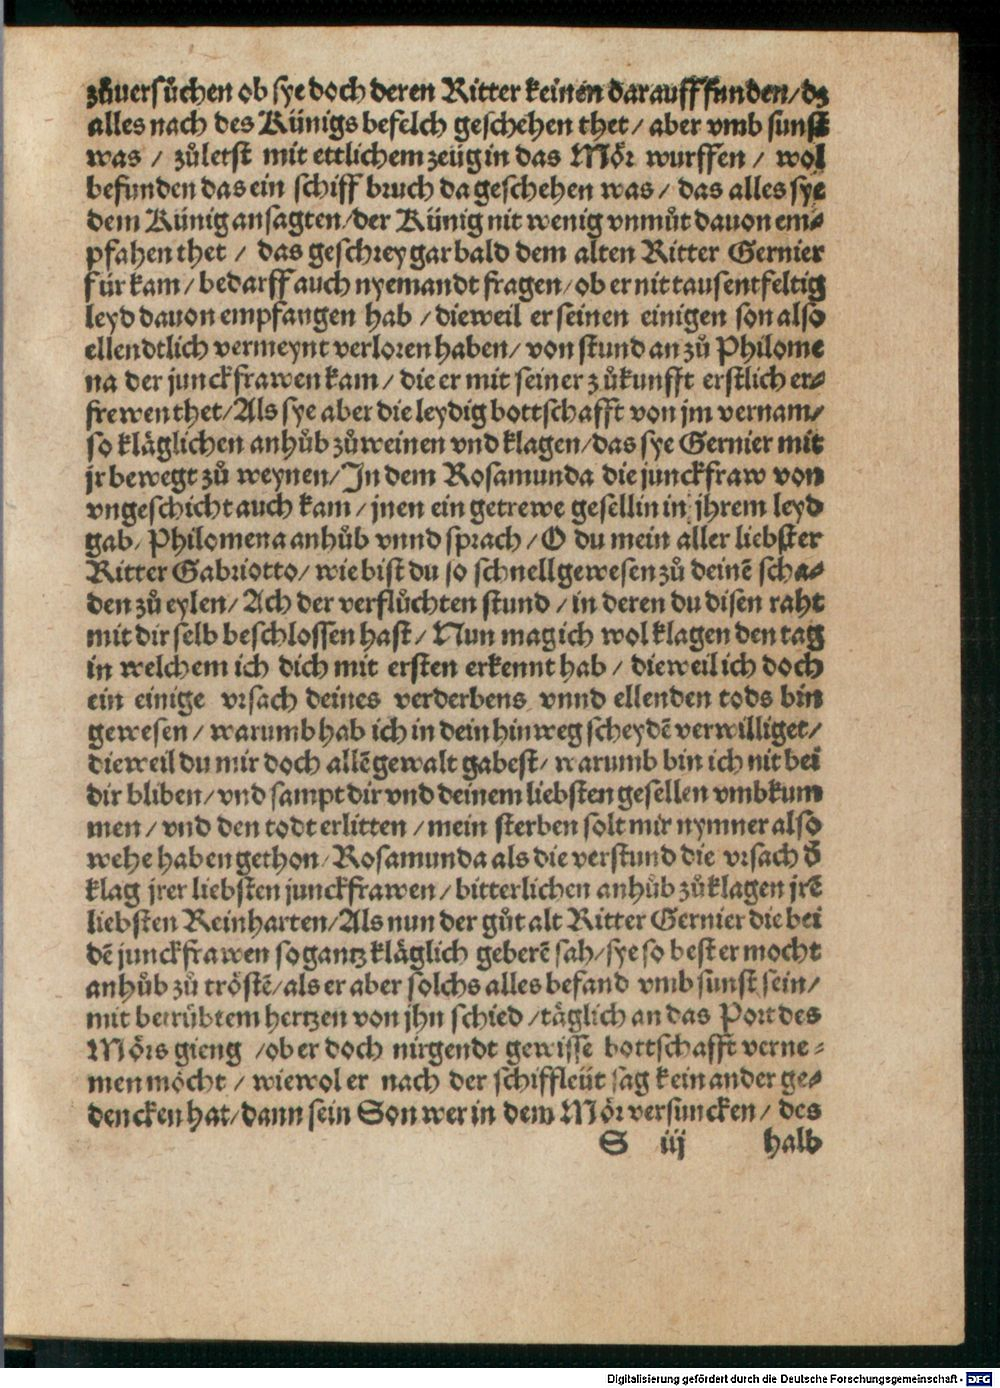 zůuersůchen ob sye doch deren Ritter keinen darauff funden/ dz
alles nach des Künigs befelch geschehen thet/ aber vmb sunst
was / zůletst mit ettlichem zeüg in das Mör wurffen / wol
befunden das ein schiff bruch da geschehen was/ das alles sye
dem Künig ansagten/der Künig nit wenig vnmůt dauon em⸗
pfahen thet / das geschrey gar bald dem alten Ritter Gernier
für kam/ bedarff auch nyemandt fragen/ ob er nit tausentfeltig
leyd dauon empfangen hab /dieweil er seinen einigen son also
ellendtlich vermeynt verloren haben/ von stund an zů Philome
na der junckfrawen kam/ die er mit seiner zůkunfft erstlich er⸗
frewen thet/Als sye aber die leydig bottschafft von jm vernam/
so kläglichen anhůb zůweinen vnd klagen/das sye Gernier mit
jr bewegt zů weynen/In dem Rosamunda die junckfraw von
vngeschicht auch kam/ jnen ein getrewe gesellin in jhrem leyd
gab/ Philomena anhůb vnnd sprach/ O du mein aller liebster
Ritter Gabriotto/ wie bist du so schnell gewesen zů deinē scha⸗
den zů eylen/ Ach der verflůchten stund /in deren du disen raht
mit dir selb beschlossen hast/ Nun mag ich wol klagen den tag
in welchem ich dich mit ersten erkennt hab / dieweil ich doch
ein einige vrsach deines verderbens vnnd ellenden tods bin
gewesen/ warumb hab ich in dein hinweg scheydē verwilliget/
dieweil du mir doch allē gewalt gabest/ warumb bin ich nit bei
dir bliben/ vnd sampt dir vnd deinem liebsten gesellen vmbkum
men/ vnd den todt erlitten /mein sterben solt mir nymner also
wehe haben gethon/ Rosamunda als die verstund die vrsach d̄
klag jrer liebsten junckfrawen/ bitterlichen anhůb zůklagen jrē
liebsten Reinharten/Als nun der gůt alt Ritter Gernier die bei
dē junckfrawen so gantz kläglich geberē sah/sye so best er mocht
anhůb zů tröstē/als er aber solchs alles befand vmb sunst sein/
mit betrübtem hertzen von jhn schied /täglich an das Port des
Mörs gieng /ob er doch nirgendt gewisse bottschafft verne⸗
men möcht / wiewol er nach der schiffleüt sag kein ander ge⸗
dencken hat/dann sein Son wer in dem Mör versuncken/ des
S iij halb
Digitalisierung gefördert durch die Deutsche Forschungsgemeinschaft - DFG